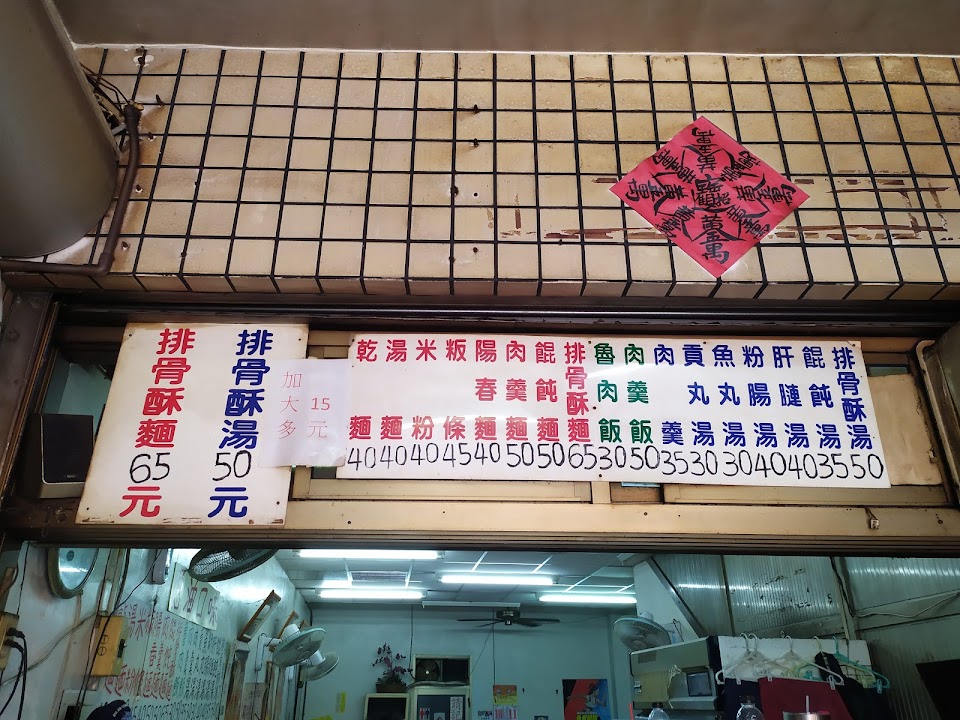 排骨酥麵65元
排骨酥湯50元
加大多15元
乾麵40
湯麵40
米粉40
粄條45
陽春麵40
肉羹麵50
餛飩麵50
排骨酥麵65
魯肉飯30
肉羹飯50
肉羹35
貢丸湯30
魚丸湯30
粉腸湯40
肝腱湯40
餛飩湯35
排骨酥湯50